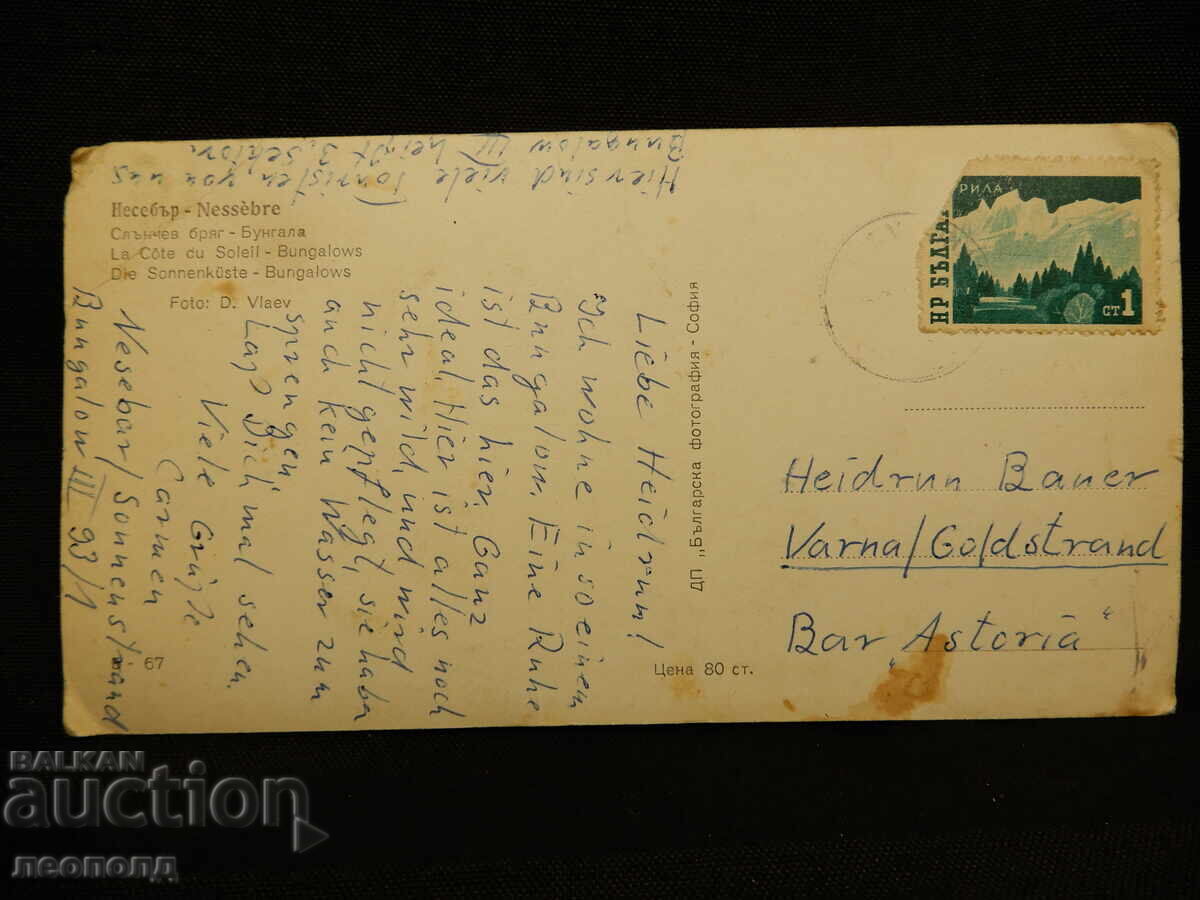 Несебър - Nessèbre
Слънчев бряг - Бунгала
La Côte du Soleil - Bungalows
Die Sonnenküste - Bungalows
Foto: D. Vlaev
Liebe Heidrun!
Ich wohne in so einem
Bungalow. Eine Ruhe
ist das hier. Ganz
ideal. Hier ist alles noch
sehr wild und wird
nicht gepflegt, sie haben
auch kein Wasser zum
sprengen.
Laß Dich mal sehen.
Viele Grüße
Carmen
Nesebar/Sonnenstrand
Bungalow III 93/1
Hier sind viele Touristen, von uns
Bungalow III heißt 3.
67
ДП „Българска фотография" - София
Цена 80 ст.
РИЛА
НР БЪЛГАР
СТ 1
Heidrun Bauer
Varna/Goldstrand
Bar „Astoria"
BALKAN
auction
леополд